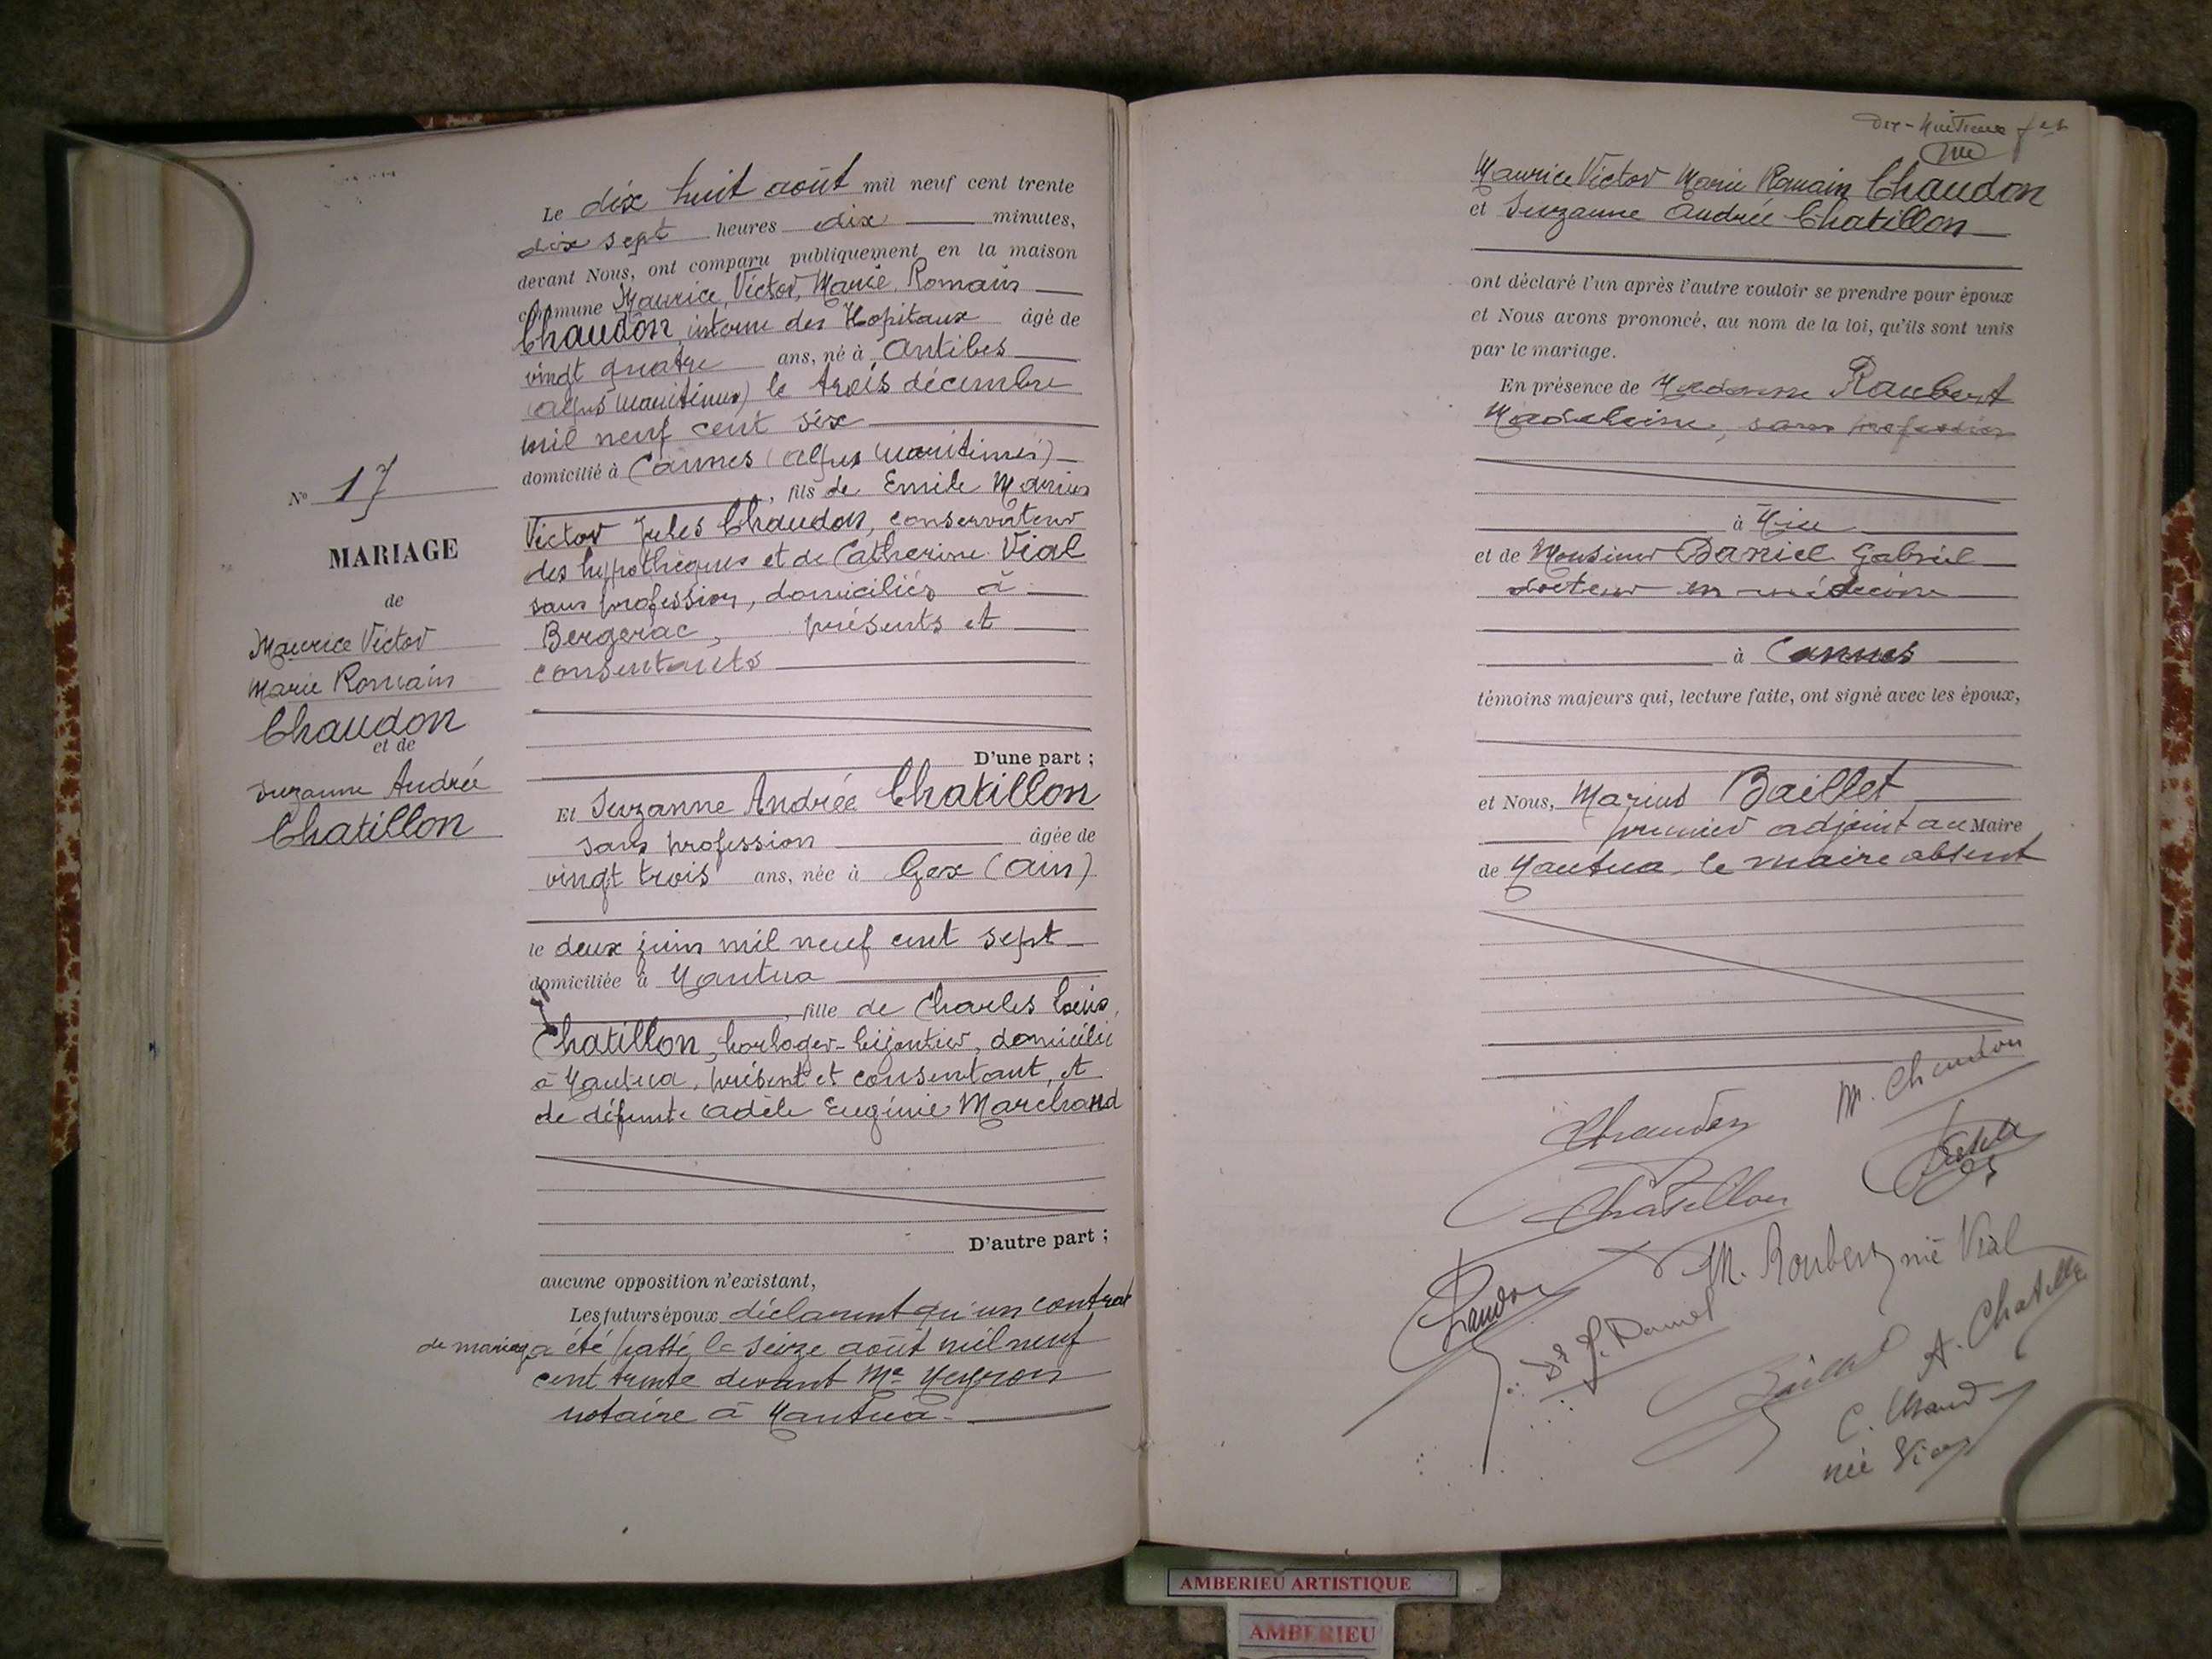 N° 17
MARIAGE
de
Maurice Victor
Marie Romain
Chaudon
et de
Suzanne Andrée
Chatillon
Le dix huit août mil neuf cent trente
dix sept heures dix minutes,
devant Nous, ont comparu publiquement en la maison
commune Maurice, Victor, Marie, Romain
Chaudon, interne des Hopitaux âgé de
vingt quatre ans, né à Antibes
(Alpes Maritimes) le trois décembre
mil neuf cent six
domicilié à Cannes (Alpes Maritimes)
, fils de Emile Marius
Victor Jules Chaudon, conservateur
des hypothèques et de Catherine Vial
sans profession, domiciliés à
Bergerac, présents et
consentants
D'une part ;
Et Suzanne Andrée Chatillon
sans profession âgée de
vingt trois ans, née à Gex (Ain)
le deux juin mil neuf cent sept
domiciliée à Nantua
, fille de Charles Louis,
Chatillon, horloger-bijoutier, domicilié
à Nantua, présent et consentant, et
de défunte Adèle Eugénie Marchand
D'autre part ;
aucune opposition n'existant,
Les futurs époux déclarent qu'un contrat
de mariage a été passé le seize août mil neuf
cent trente devant Me Neyron
notaire à Nantua.
Dix-huitième
Maurice Victor Marie Romain Chaudon
et Suzanne Andrée Chatillon
ont déclaré l'un après l'autre vouloir se prendre pour époux
et Nous avons prononcé, au nom de la loi, qu'ils sont unis
par le mariage.
En présence de Madame Roubert
Madeleine, sans profession
à Nice
et de Monsieur Daniel Gabriel
docteur en médecine
à Cannes
témoins majeurs qui, lecture faite, ont signé avec les époux,
et Nous, Marius Baillet
premier adjoint au Maire
de Nantua, le maire absent
M. Chaudon
Chaudon
Chatillon
M. Roubert née Vial
Chaudon
Dr G. Daniel
A. Chatillon
Baillet
C. Chaudon
née Vial
AMBERIEU ARTISTIQUE
AMBERIEU